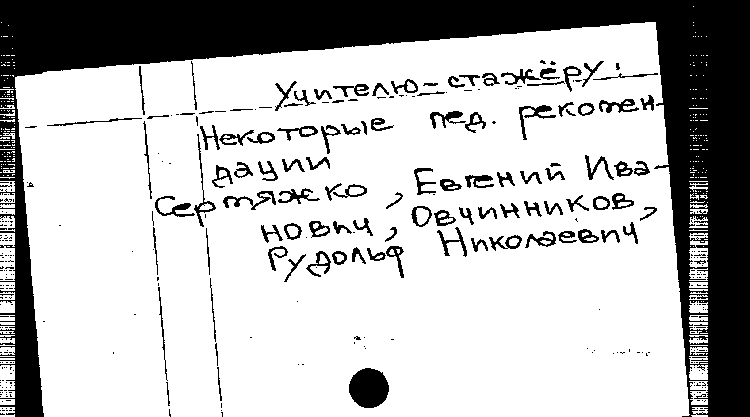 Учителю-стажёру:
Некоторые пед. рекомен-
дации
Сертяжко, Евгений Ива-
нович, Овчинников,
Рудольф Николаевич